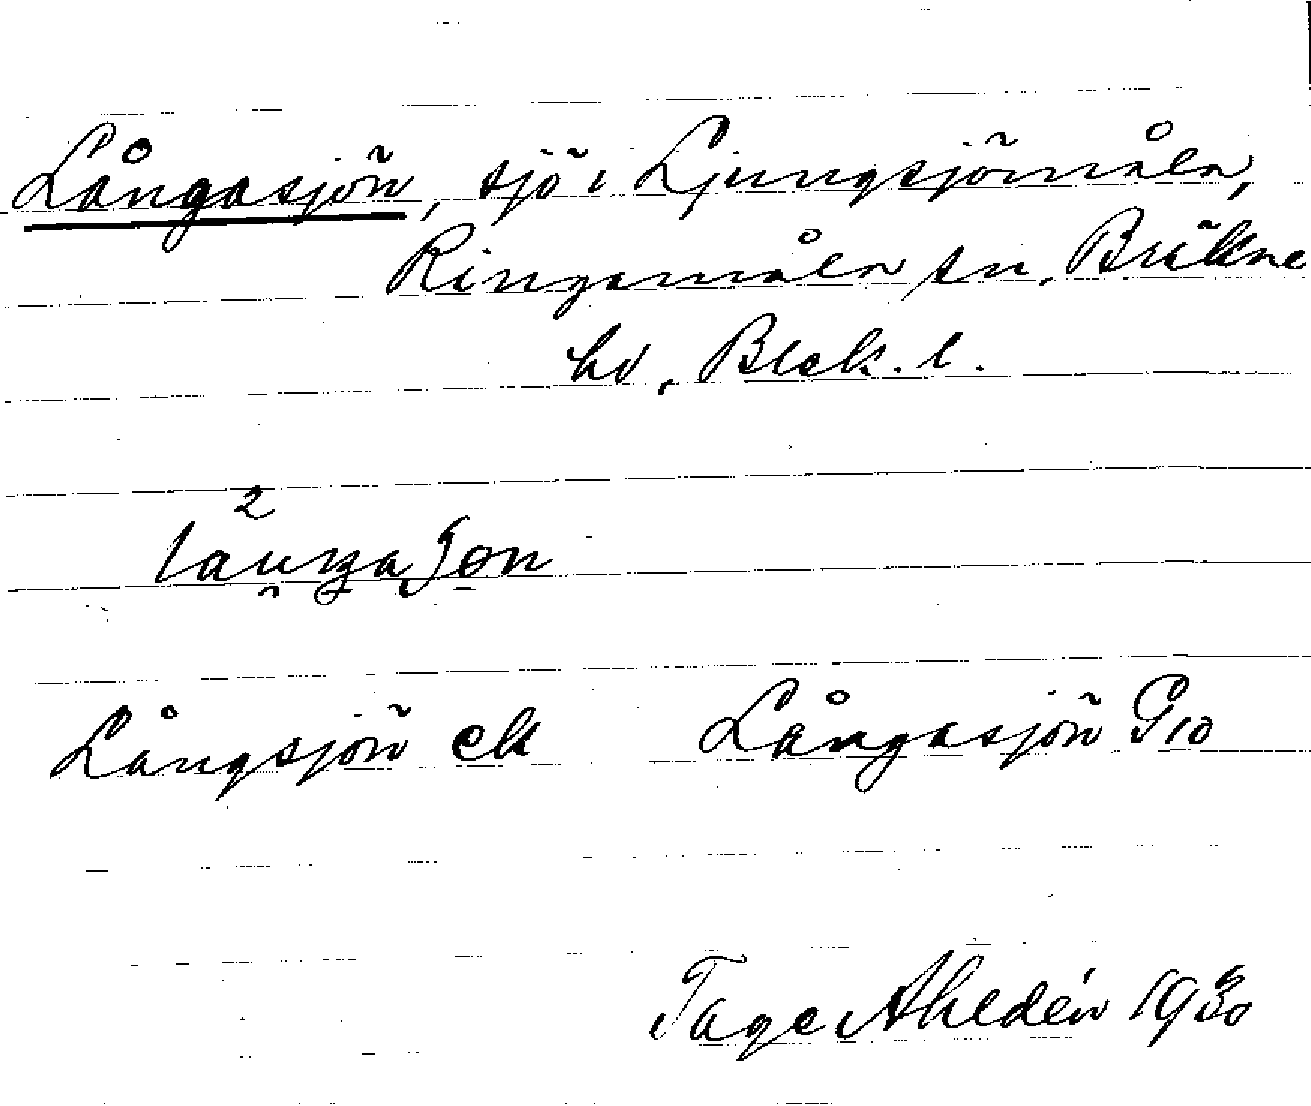 Långasjön, sjö i Ljungsjömåla,
Ringamåla sn, Bräkne
hd, Blek. l.
Långsjön ek Långasjön G10
Tage Ahldén 1930